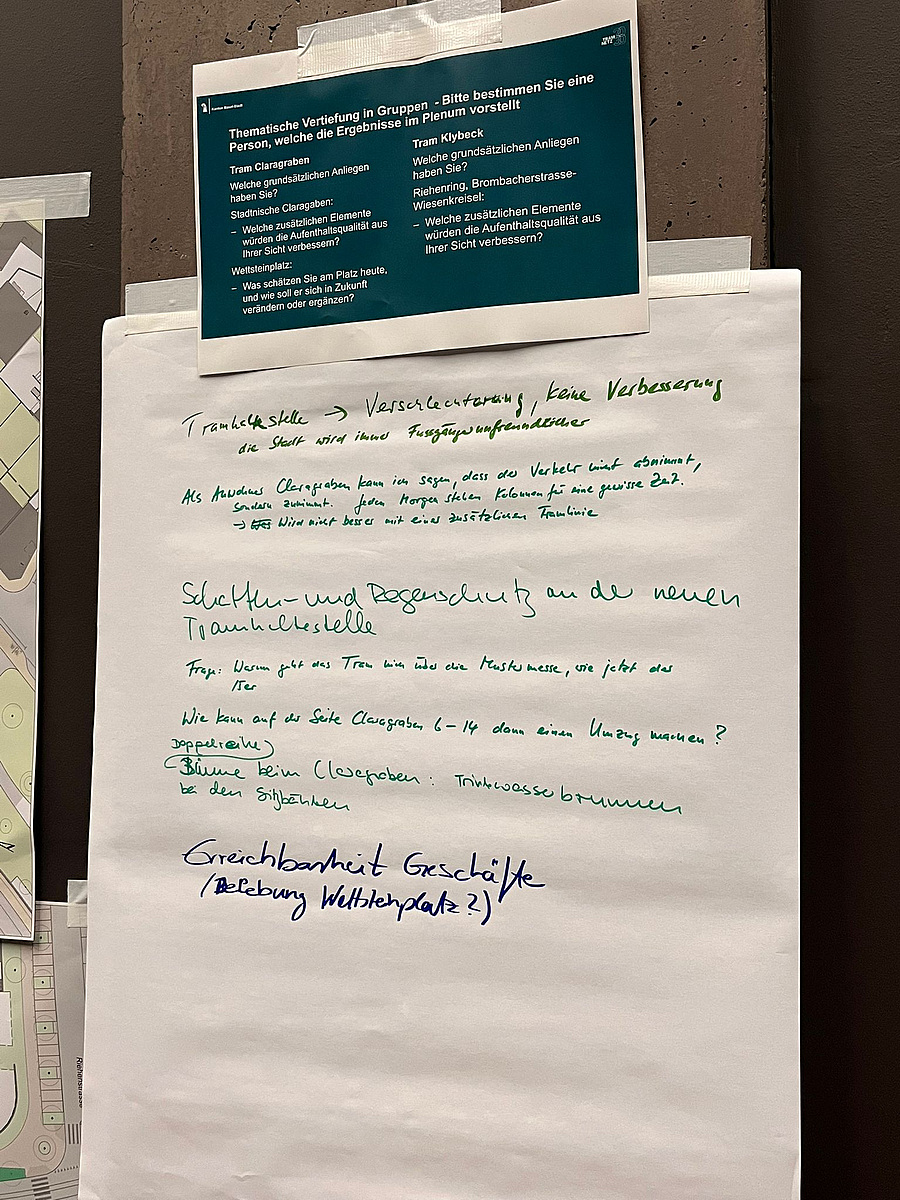 Kanton Basel-Stadt
TRAM
NETZ
Thematische Vertiefung in Gruppen - Bitte bestimmen Sie eine
Person, welche die Ergebnisse im Plenum vorstellt
Tram Claragraben
Welche grundsätzlichen Anliegen
haben Sie?
Stadtnische Claragaben:
– Welche zusätzlichen Elemente
würden die Aufenthaltsqualität aus
Ihrer Sicht verbessern?
Wettsteinplatz:
– Was schätzen Sie am Platz heute,
und wie soll er sich in Zukunft
verändern oder ergänzen?
Tram Klybeck
Welche grundsätzlichen Anliegen
haben Sie?
Riehenring, Brombacherstrasse-
Wiesenkreisel:
– Welche zusätzlichen Elemente
würden die Aufenthaltsqualität aus
Ihrer Sicht verbessern?
Tramhaltestelle → Verschlechterung, keine Verbesserung
die Stadt wird immer Fussgängerunfreundlicher
Als Anwohner Claragraben kann ich sagen, dass der Verkehr nicht abnimmt,
sondern zunimmt. Jeden Morgen stehen Kolonnen für eine gewisse Zeit.
→ Wird nicht besser mit einer zusätzlichen Tramlinie
Schatten- und Regenschutz an der neuen
Tramhaltestelle
Frage: Warum geht das Tram nicht über die Mustermesse, wie jetzt das
15er
Wie kann auf der Seite Claragraben 6-14 dann einen Umzug machen?
Doppelreihe
Bäume beim Claragraben: Trinkwasserbrunnen
bei den Sitzbänken
Erreichbarkeit Geschäfte
(Belebung Wettsteinplatz?)
Riehenstrasse